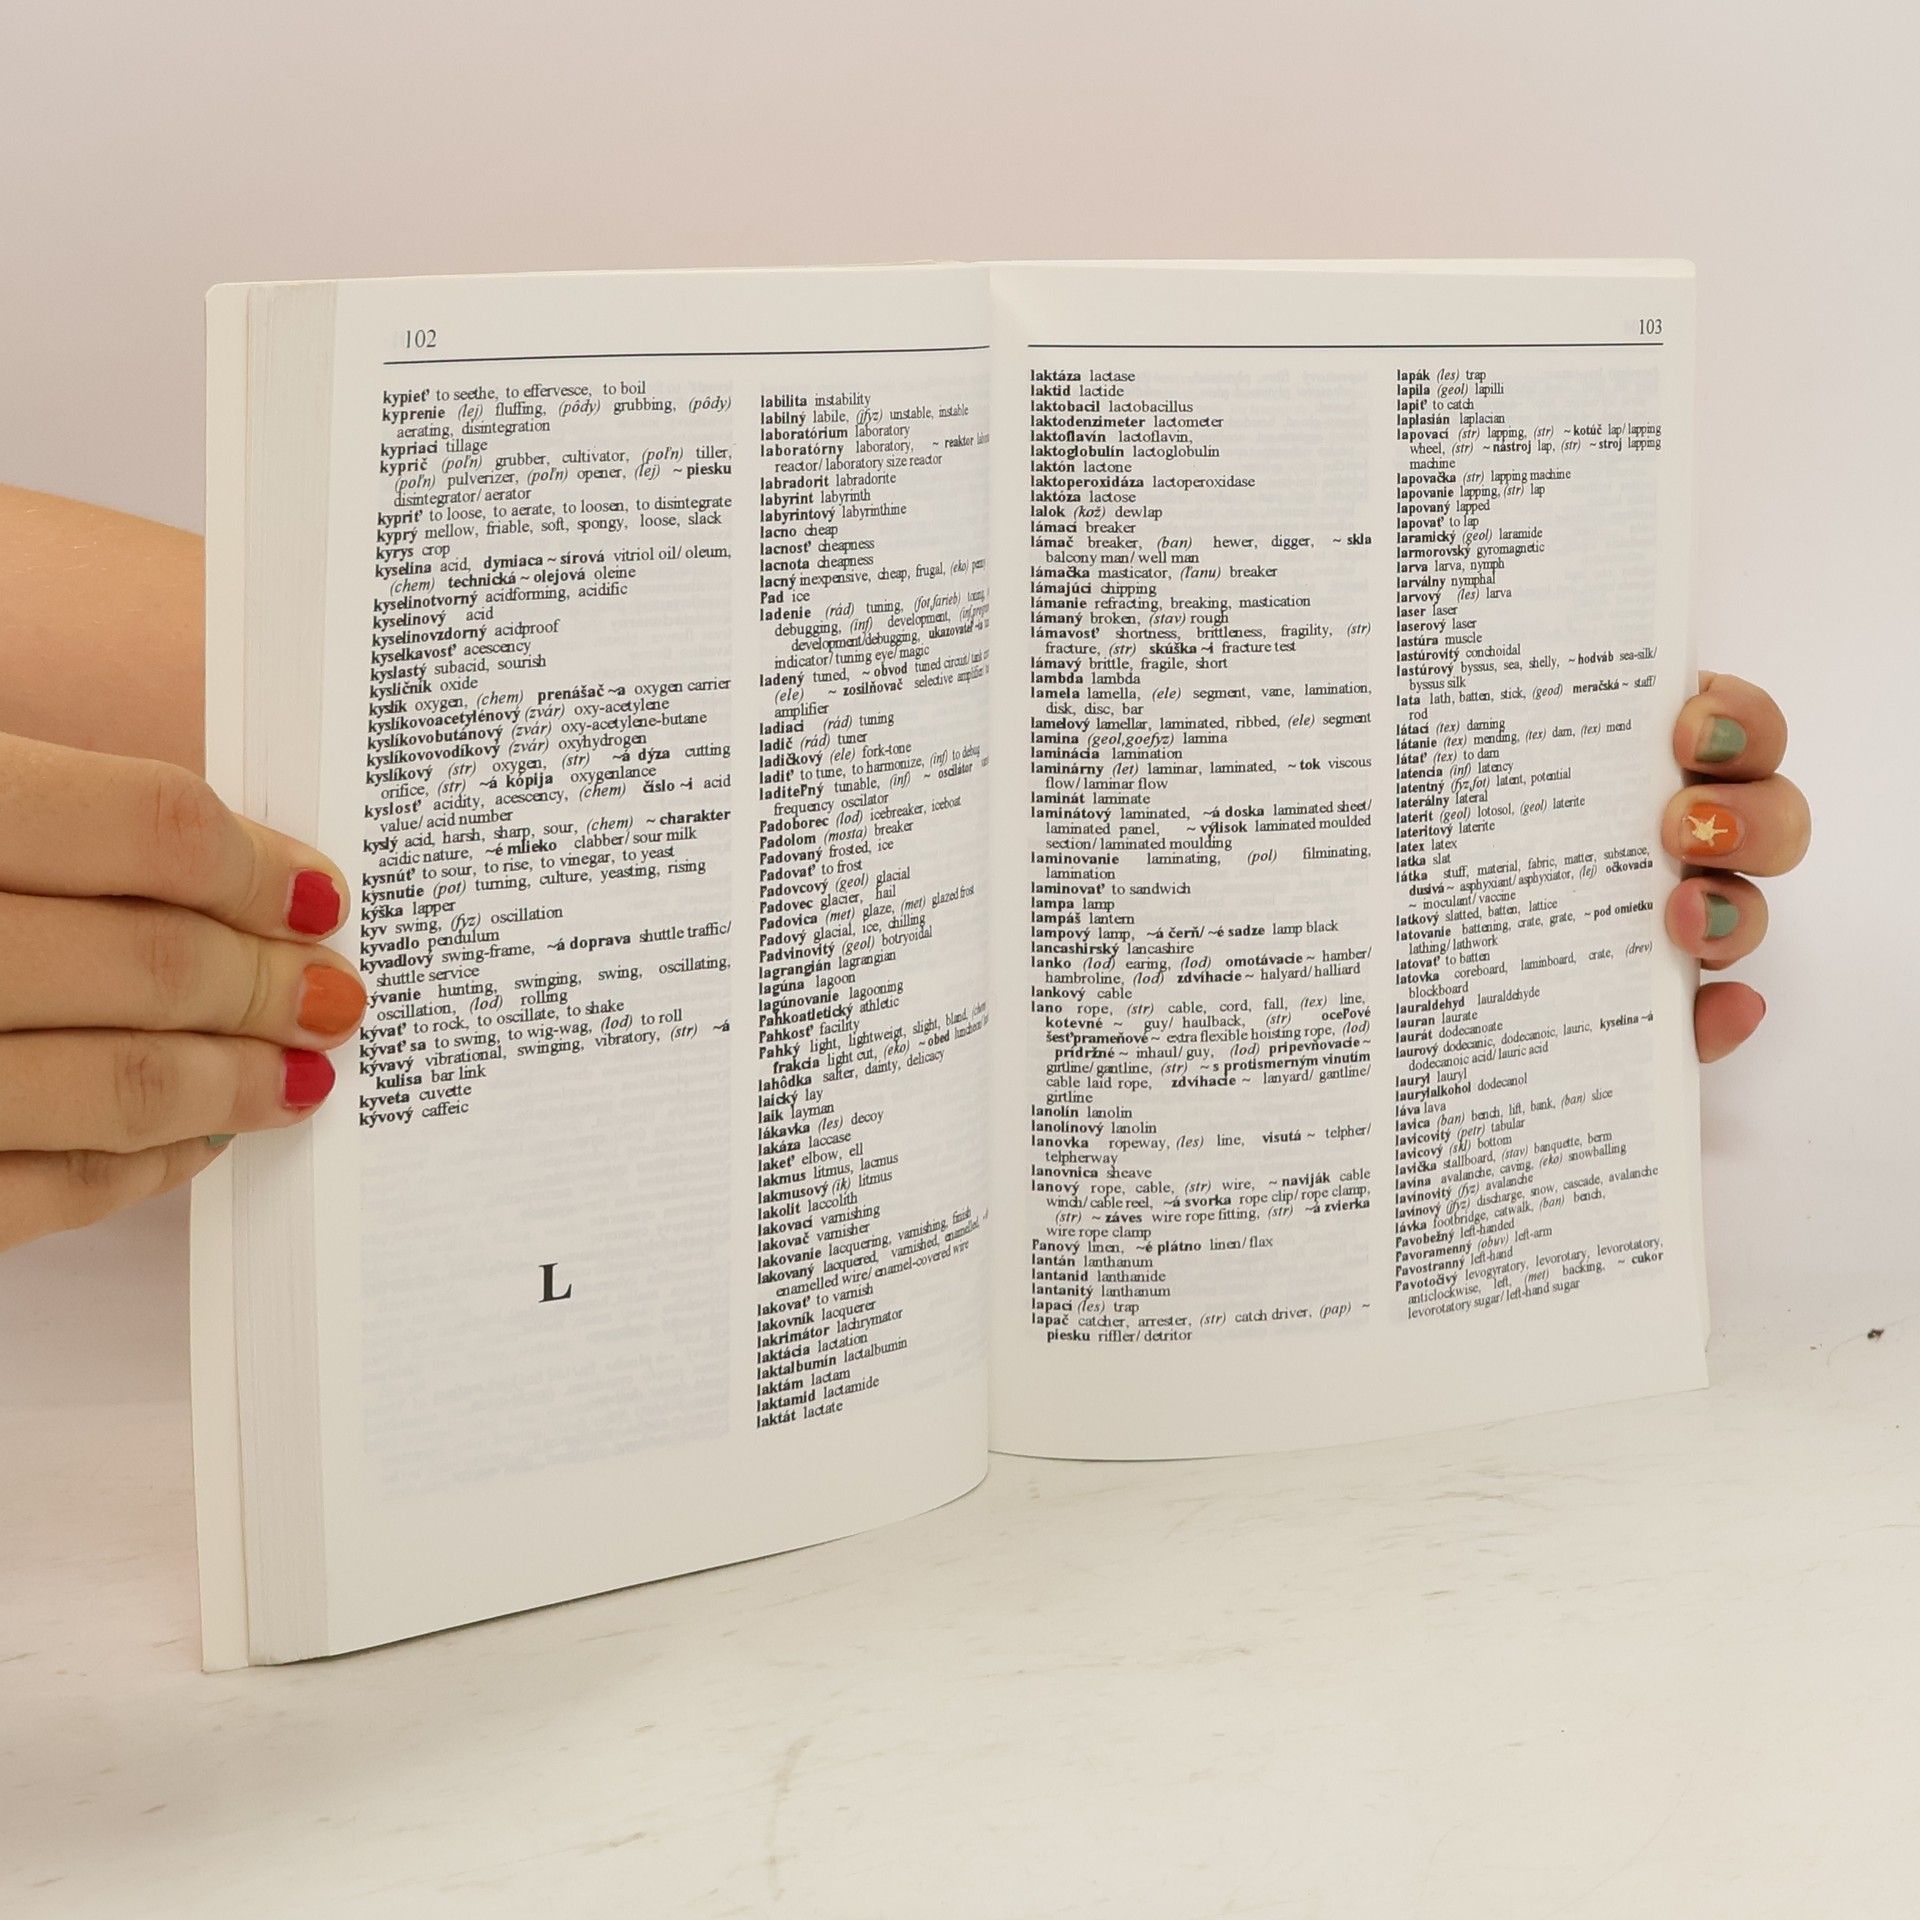 102
kypieť to seethe, to effervesce, to boil
kyprenie (lej) fluffing, (pôdy) grubbing, (pôdy)
aerating, disintegration
kypriaci tillage
kyprič (poľn) grubber, cultivator, (poľn) tiller,
(poľn) pulverizer, (poľn) opener, (lej) ~ piesku
disintegrator/ aerator
kypriť to loose, to aerate, to loosen, to disintegrate
kyprý mellow, friable, soft, spongy, loose, slack
kyrys crop
kyselina acid, dymiaca ~ sírová vitriol oil/ oleum,
(chem) technická ~ olejová oleine
kyselinotvorný acidforming, acidific
kyselinový acid
kyselinovzdorný acidproof
kyselkavosť acescency
kyslastý subacid, sourish
kysličník oxide
kyslík oxygen, (chem) prenášač ~a oxygen carrier
kyslíkovoacetylénový (zvár) oxy-acetylene
kyslíkovobutánový (zvár) oxy-acetylene-butane
kyslíkovovodíkový (zvár) oxyhydrogen
kyslíkový (str) oxygen, (str) ~á dýza cutting
orifice, (str) ~á kópija oxygenlance
kyslosť acidity, acescency, (chem) číslo ~i acid
value/ acid number
kyslý acid, harsh, sharp, sour, (chem) ~ charakter
acidic nature, ~é mlieko clabber/ sour milk
kysnúť to sour, to rise, to vinegar, to yeast
kysnutie (pot) turning, culture, yeasting, rising
kýška lapper
kyv swing, (fyz) oscillation
kyvadlo pendulum
kyvadlový swing-frame, ~á doprava shuttle traffic/
shuttle service
kývanie hunting, swinging, swing, oscillating,
oscillation, (lod) rolling
kývať to rock, to oscillate, to shake
kývať sa to swing, to wig-wag, (lod) to roll
kývavý vibrational, swinging, vibratory, (str) ~á
kulisa bar link
kyveta cuvette
kývový caffeic
L
labilita instability
labilný labile, (jfyz) unstable, instable
laboratórium laboratory
laboratórny laboratory, ~ reaktor
reactor/ laboratory size reactor
labradorit labradorite
labyrint labyrinth
labyrintový labyrinthine
lacno cheap
lacnosť cheapness
lacnota cheapness
lacný inexpensive, cheap, frugal, (eko)
ľad ice
ladenie (rád) tuning, (fot,farieb) toning,
debugging, (inf) development,
development/debugging, ukazovateľ ~ia
indicator/ tuning eye/ magic
ladený tuned, ~ obvod tuned circuit/
(ele) ~ zosilňovač selective amplifier/
amplifier
ladiaci (rád) tuning
ladič (rád) tuner
ladičkový (ele) fork-tone
ladiť to tune, to harmonize, (inf) to debug
laditeľný tunable, (inf) ~ oscilátor
frequency oscilator
ľadoborec (lod) icebreaker, iceboat
ľadolom (mosta) breaker
ľadovaný frosted, ice
ľadovať to frost
ľadovcový (geol) glacial
ľadovec glacier, hail
ľadovica (met) glaze, (met) glazed frost
ľadový glacial, ice, chilling
ľadvinovitý (geol) botryoidal
lagrangián lagrangian
lagúna lagoon
lagúnovanie lagooning
ľahkoatletický athletic
ľahkosť facility
ľahký light, lightweigt, slight, bland,
frakcia light cut, (eko) ~ obed
lahôdka salter, dainty, delicacy
laický lay
laik layman
lákavka (les) decoy
lakáza laccase
lakeť elbow, ell
lakmus litmus, lacmus
lakmusový (ik) litmus
lakolit laccolith
lakovací varnishing
lakovač varnisher
lakovanie lacquering, varnishing, finish
lakovaný lacquered, varnished, enamelled,
enamelled wire/ enamel-covered wire
lakovať to varnish
lakovník lacquerer
lakrimátor lachrymator
laktácia lactation
laktalbumín lactalbumin
laktám lactam
laktamid lactamide
laktát lactate
103
laktáza lactase
laktid lactide
laktobacil lactobacillus
laktodenzimeter lactometer
laktoflavín lactoflavin,
laktoglobulín lactoglobulin
laktón lactone
laktoperoxidáza lactoperoxidase
laktóza lactose
lalok (kož) dewlap
lámací breaker
lámač breaker, (ban) hewer, digger, ~ skla
balcony man/ well man
lámačka masticator, (ľanu) breaker
lámajúci chipping
lámanie refracting, breaking, mastication
lámaný broken, (stav) rough
lámavosť shortness, brittleness, fragility, (str)
fracture, (str) skúška ~i fracture test
lámavý brittle, fragile, short
lambda lambda
lamela lamella, (ele) segment, vane, lamination,
disk, disc, bar
lamelový lamellar, laminated, ribbed, (ele) segment
lamina (geol,goefyz) lamina
laminácia lamination
laminárny (let) laminar, laminated, ~ tok viscous
flow/ laminar flow
laminát laminate
laminátový laminated, ~á doska laminated sheet/
laminated panel, ~ výlisok laminated moulded
section/ laminated moulding
laminovanie laminating, (pol) filminating,
lamination
laminovať to sandwich
lampa lamp
lampáš lantern
lampový lamp, ~á čerň/ ~é sadze lamp black
lancashirský lancashire
lanko (lod) earing, (lod) omotávacie ~ hamber/
hambroline, (lod) zdvíhacie ~ halyard/ halliard
lankový cable
lano rope, (str) cable, cord, fall, (tex) line,
kotevné ~ guy/ haulback, (str) oceľové
šesťprameňové ~ extra flexible hoisting rope, (lod)
prídržné ~ inhaul/ guy, (lod) pripevňovacie ~
girtline/ gantline, (str) ~ s protismerným vinutím
cable laid rope, zdvíhacie ~ lanyard/ gantline/
girtline
lanolín lanolin
lanolínový lanolin
lanovka ropeway, (les) line, visutá ~ telpher/
telpherway
lanovnica sheave
lanový rope, cable, (str) wire, ~ naviják cable
winch/ cable reel, ~á svorka rope clip/ rope clamp,
(str) ~ záves wire rope fitting, (str) ~á zvierka
wire rope clamp
ľanový linen, ~é plátno linen/ flax
lantán lanthanum
lantanid lanthanide
lantanitý lanthanum
lapací (les) trap
lapač catcher, arrester, (str) catch driver, (pap) ~
piesku riffler/ detritor
lapák (les) trap
lapila (geol) lapilli
lapiť to catch
laplasián laplacian
lapovací (str) lapping, (str) ~ kotúč lap/ lapping
wheel, (str) ~ nástroj lap, (str) ~ stroj lapping
machine
lapovačka (str) lapping machine
lapovanie lapping, (str) lap
lapovaný lapped
lapovať to lap
laramický (geol) laramide
larmorovský gyromagnetic
larva larva, nymph
larválny nymphal
larvový (les) larva
laser laser
laserový laser
lastúra muscle
lastúrovitý conchoidal
lastúrový byssus, sea, shelly, ~ hodváb sea-silk/
byssus silk
lata lath, batten, stick, (geod) meračská ~ staff/
rod
látací (tex) darning
látanie (tex) mending, (tex) darn, (tex) mend
látať (tex) to darn
latencia (inf) latency
latentný (fyz,fot) latent, potential
laterálny lateral
laterit (geol) lotosol, (geol) laterite
lateritový laterite
latex latex
latka slat
látka stuff, material, fabric, matter, substance,
dusivá ~ asphyxiant/ asphyxiator, (lej) očkovacia
~ inoculant/ vaccine
latkový slatted, batten, lattice
latovanie battening, crate, grate, ~ pod omietku
lathing/ lathwork
latovať to batten
latovka coreboard, laminboard, crate, (drev)
blockboard
lauraldehyd lauraldehyde
lauran laurate
laurát dodecanoate
laurový dodecanic, dodecanoic, lauric, kyselina ~á
dodecanoic acid/ lauric acid
lauryl lauryl
laurylalkohol dodecanol
láva lava
lavica (ban) bench, lift, bank, (ban) slice
lavicovitý (petr) tabular
lavicový (skl) bottom
lavička stallboard, (stav) banquette, berm
lavína avalanche, caving, (eko) snowballing
lavínovitý (fyz) avalanche
lavínový (jfyz) discharge, snow, cascade, avalanche
lávka footbridge, catwalk, (ban) bench,
ľavobežný left-handed
ľavoramenný (obuv) left-arm
ľavostranný left-hand
ľavotočivý levogyratory, levorotary, levorotatory,
anticlockwise, left, (met) backing, ~ cukor
levorotatory sugar/ left-hand sugar